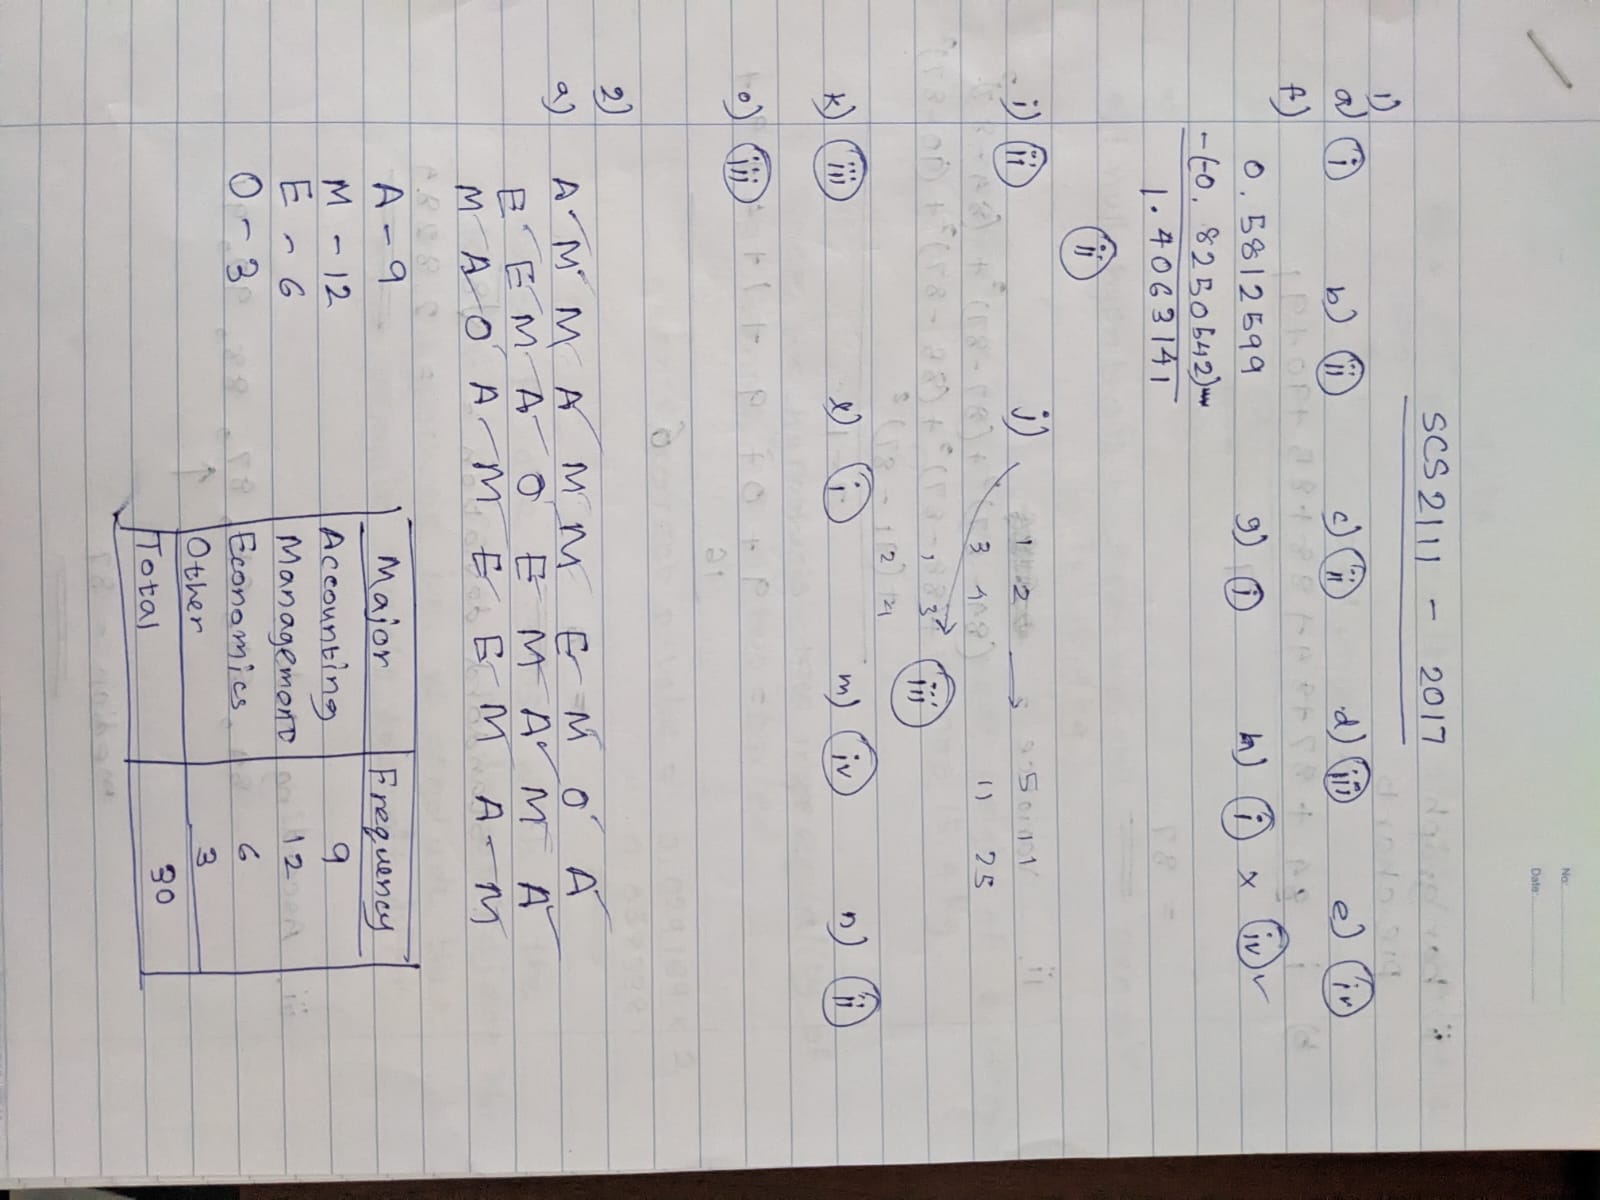 No:
Date:
SCS2111 - 2017
1)
a) i b) ii c) ii d) iii e) iv
f)
0.5812599 g) i h) i × iv ✓
-(-0.8250542)
1.4063141
ii
i) ii j) 1 2 → 5 11
3 4 11 25
1 3 iii
2 4
k) iii l) i m) iv n) ii
o) iii
2)
a) A M M A M M E M O A
E E M A O E M A M A
M A O A M E E M A M
A - 9
M - 12
E - 6
O - 3
Major Frequency
Accounting 9
Management 12
Economics 6
Other 3
Total 30